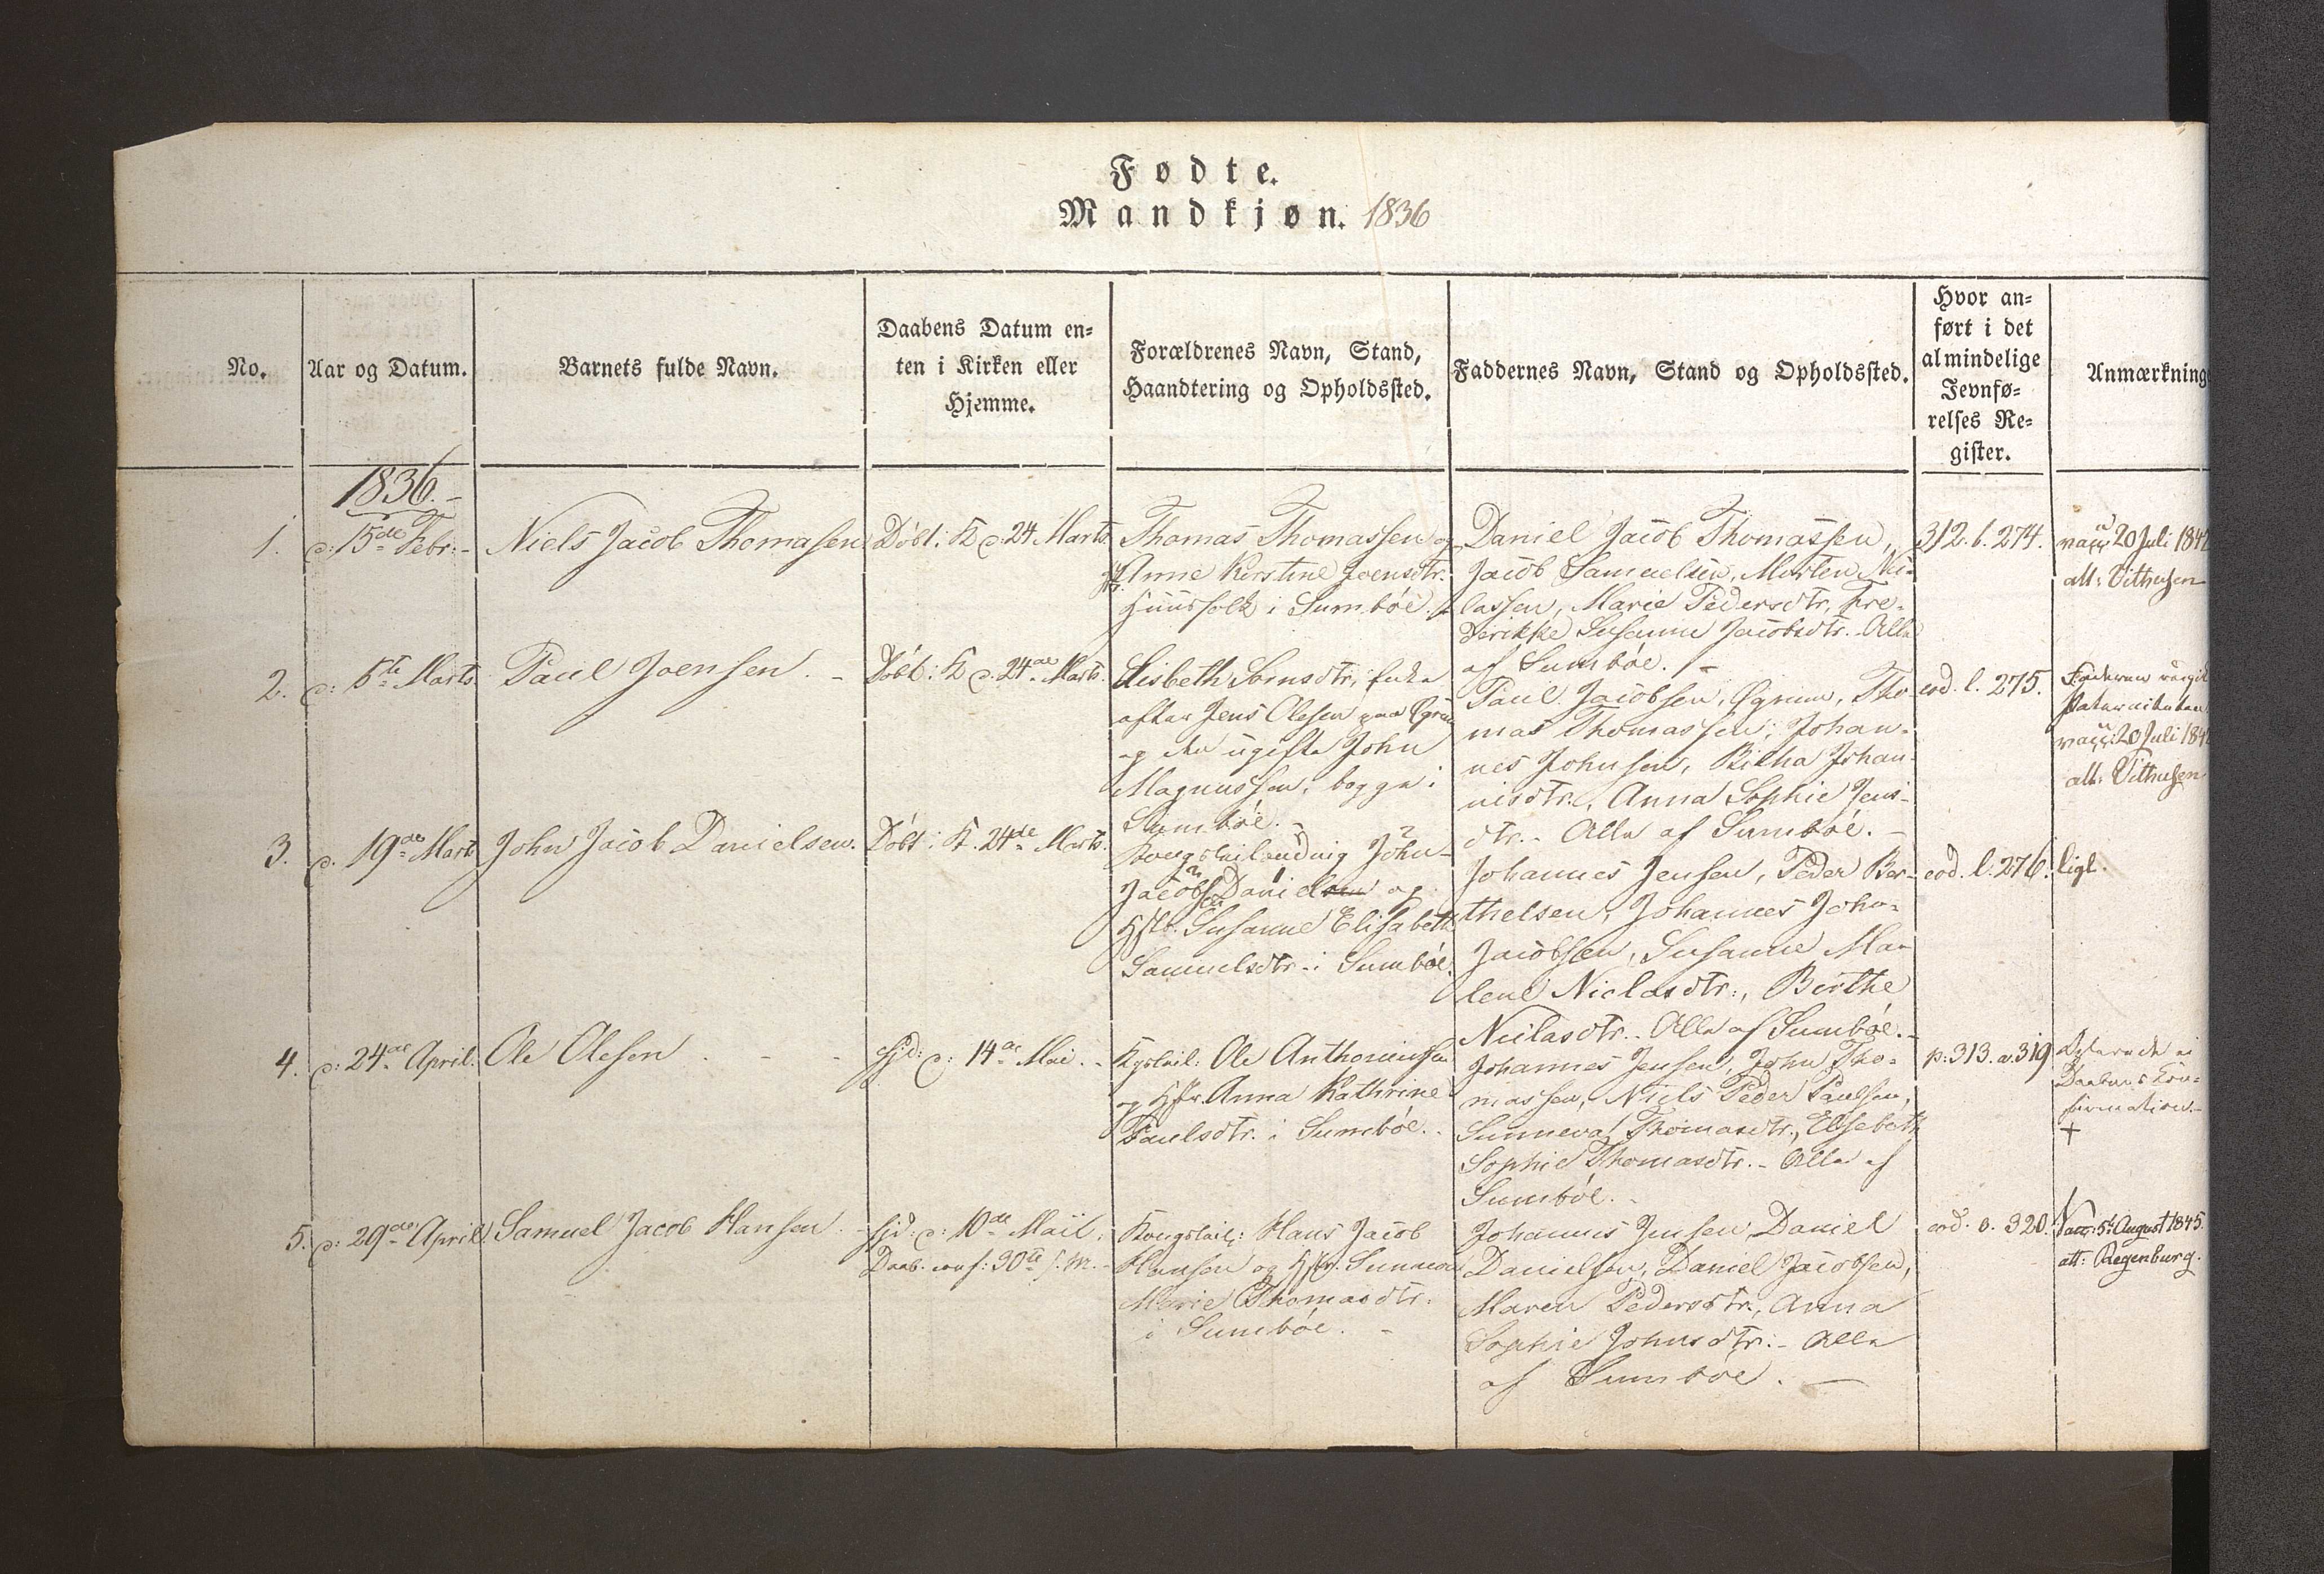 Fødte.
Mandkjøn. 1836
No.
Aar og Datum.
Barnets fulde Navn.
Daabens Datum en-
ten i Kirken eller
Hjemme.
Forældrenes Navn, Stand,
Haandtering og Opholdssted.
Faddernes Navn, Stand og Opholdssted.
Hvor an-
ført i det
almindelige
Jevnfø-
relses Re-
gister.
Anmærkning
1836.-
1.
d: 15de Febr:-
Niels Jacob Thomasen
Döbt: K d: 24 Marts
Thomas Thomassen og
Anne Kirstine Joensdtr.
Huusfolk i Sumböe.
Daniel Jacob Thomassen,
Jacob Samuelsen, Morten Ni-
classen, Marie Pedersdtr, Fre-
derikke Susanne Jacobsdtr. Alle
af Sumböe. -
312. b. 274.
vacc 20 Juli 184
att: Vithusen
2.
d: 5te Marts
Paul Joensen. -
Döbt: K d: 24de Marts.
Lisbeth dtr, Enke
efter Jens Olesen paa
og den ugifte John
Magnussen, begge i
Sumböe. -
Paul Jacobsen, Øgrum, Tho-
mas Thomassen, Johan-
nes Johnsen, Birtha Johan-
nisdtr., Anna Sophie Jens-
dtr. - Alle af Sumböe. -
eod. l. 275.
Faderen
Paterniteten
vacc: 20 Juli 184
att: Vithusen
3.
d. 19de Mart
John Jacob Danielsen.
Döbt: K. 24de Marts.
John
Jacobsen Daniel og
Hstr. Susanne Elisabeth
Samuelsdtr. i Sumböe.
Johannes Jensen, Peder Ber-
thelsen, Johannes John-
Jacobsen, Susanne Ma-
lene Niclasdtr:, Birthe
Niclasdtr.. Alle af Sumböe. -
eod. l. 276.
ligl.
4.
d: 24de April.
Ole Olesen. - -
Hjd: d: 14de Mai. -
Ole Anthoniussen
og Hstr. Anna Kathrine
Paulsdtr. i Sumböe. -
Johannes Jensen, John Tho-
massen, Niels Peder Paulsen,
Sunneva Thomasdtr., Elisebeth
Sophie Thomasdtr. - Alle af
Sumböe. -
p: 313. a. 319
Daabens Con-
firmation. -
†
5.
d: 29de April
Samuel Jacob Hansen. -
Hjd. d: 10de Mai.
Daab. conf: 30te s. M. -
Hans Jacob
Hansen og Hstr. Sunneva
Marie Thomasdtr.
i Sumböe. -
Johannes Jensen, Daniel
Danielsen, Daniel Jacobsen,
Maren Pedersdtr., Anna
Sophie Johnsdtr: - Alle
af Sumböe. -
eod. o. 320.
Vacc: 5te August 1845.
att: Regenburg.